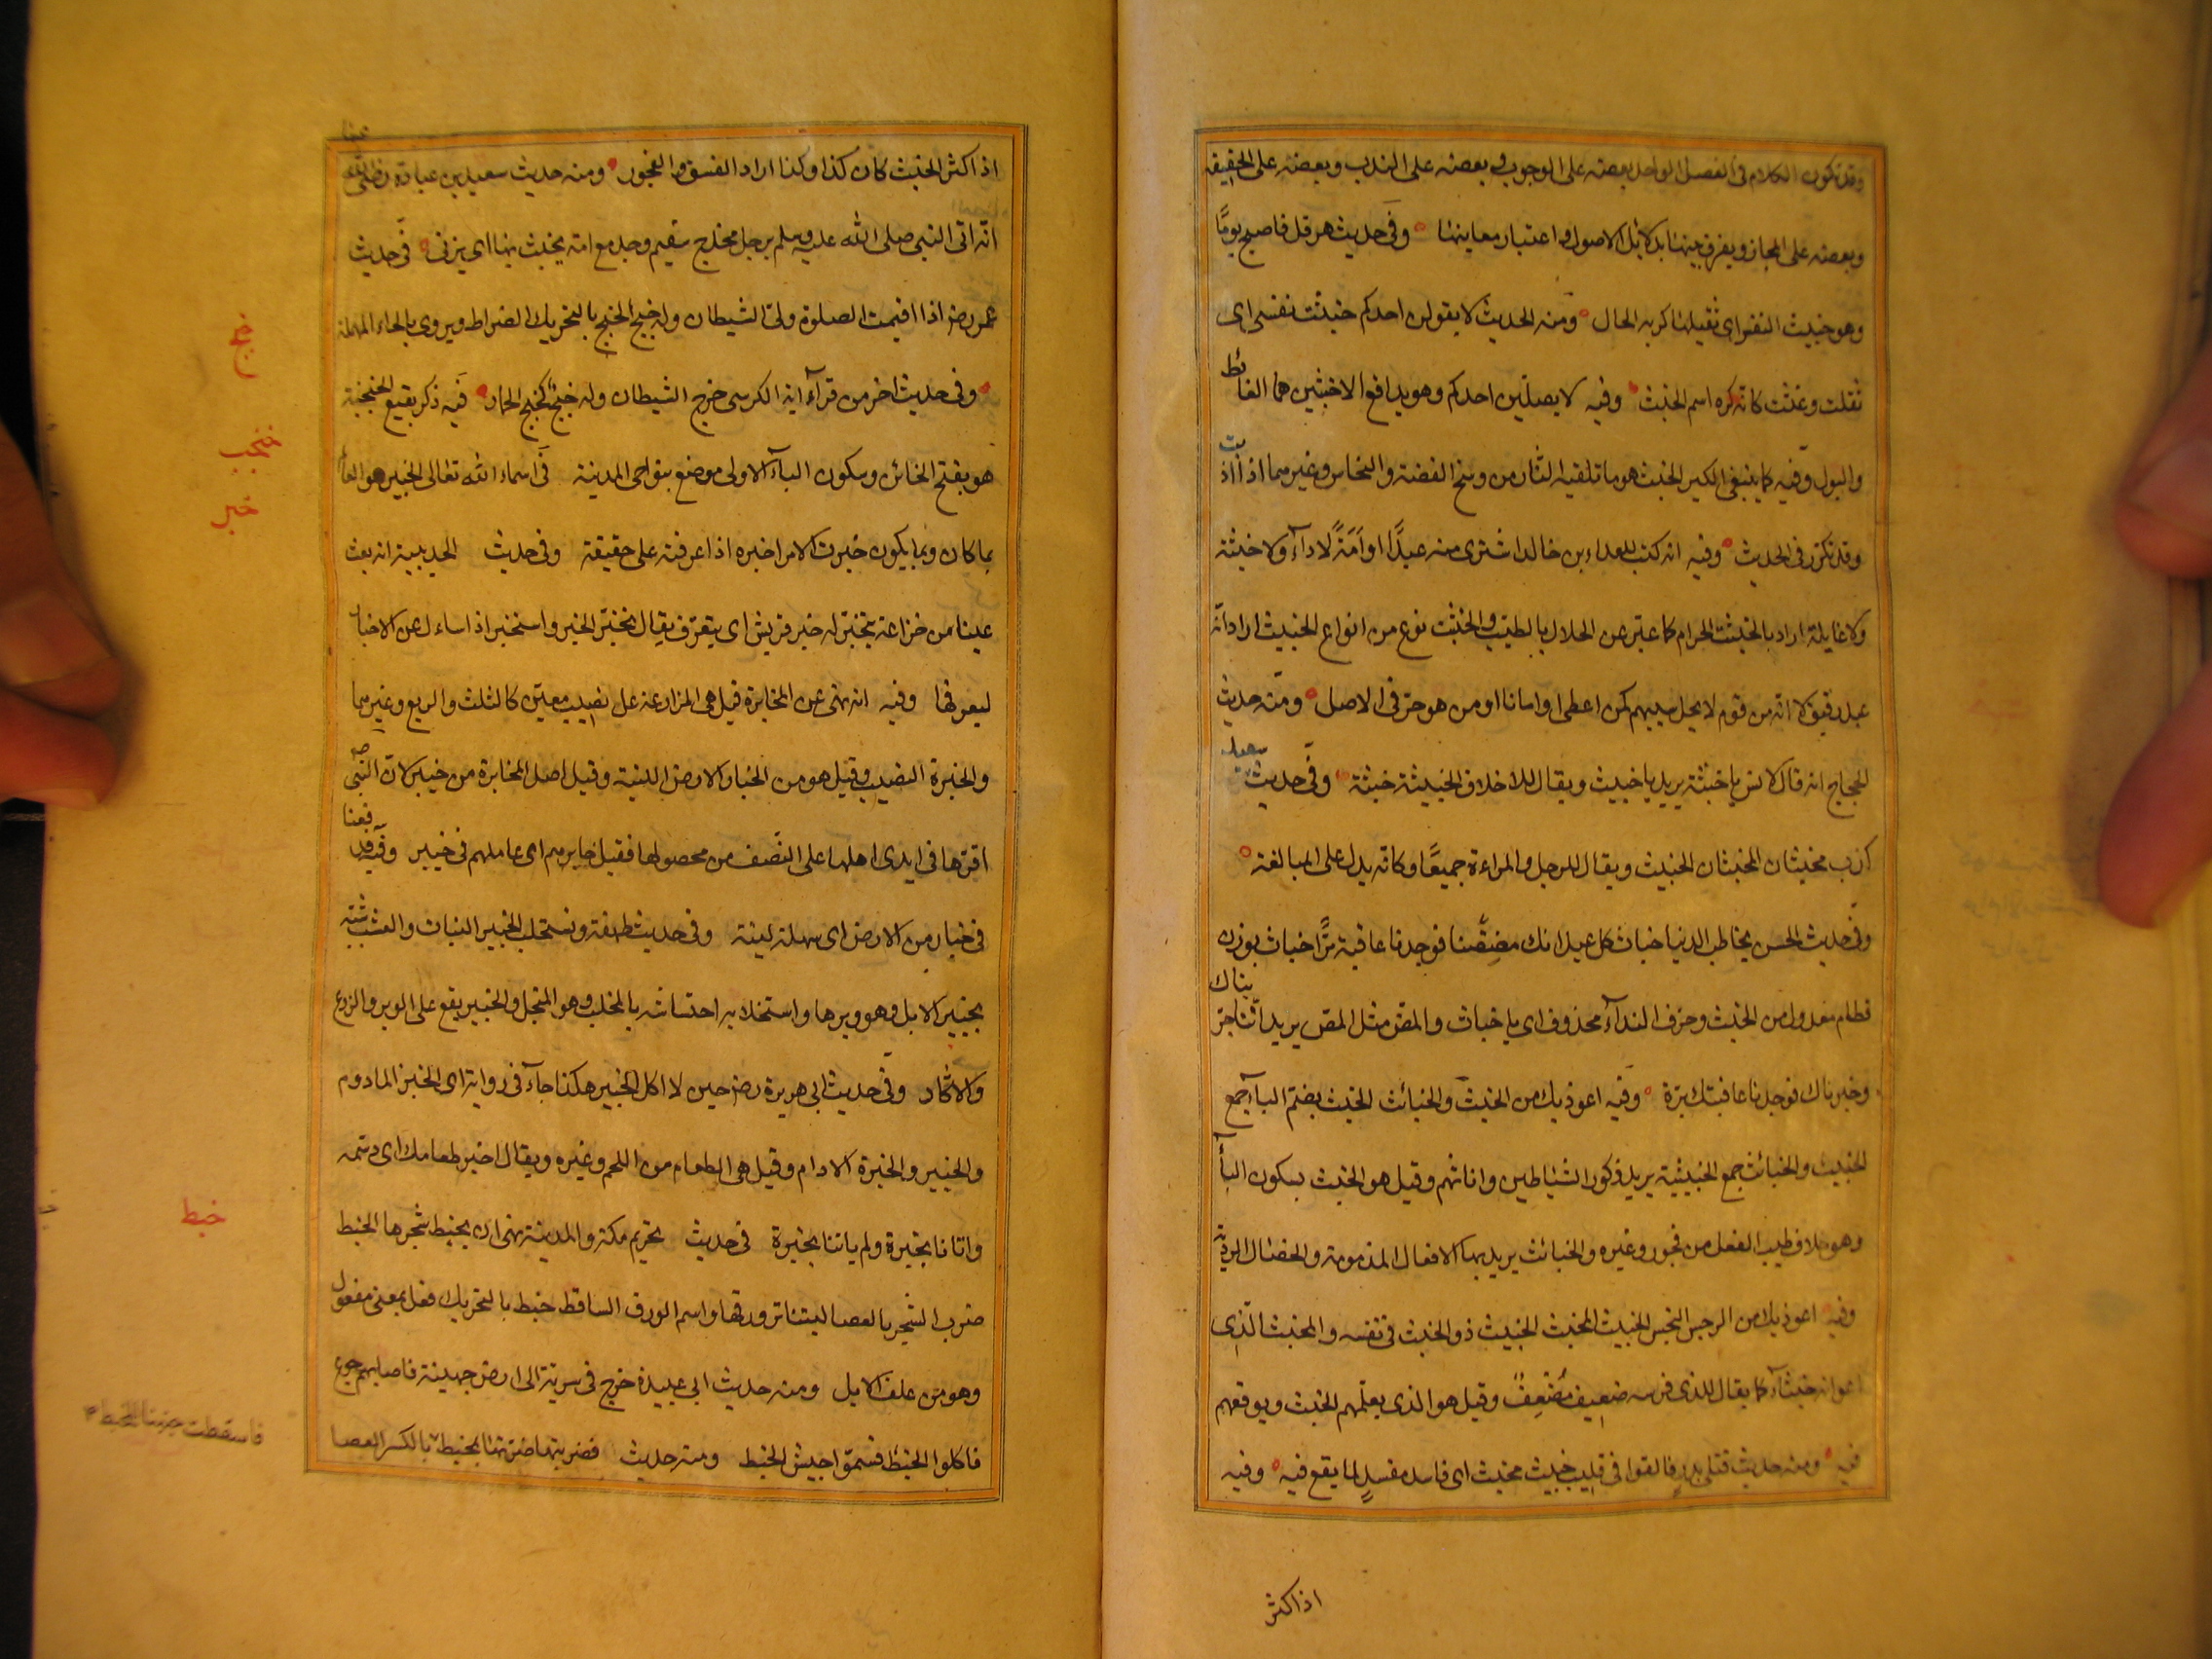 وقد يكون الكلام فى الفصل الواحد بعضه على الوجوب وبعضه على الندب وبعضه على الحقيقة
وبعضه على المجاز ويفرق بينها بدلائل الاصول واعتبار معاينها وفى حديث هرقل فاصبح يومًا
وهو خبيث النفس اى ثقيلها كريه الحال ومنه الحديث لا يقولن احدكم خبثت نفسى اى
ثقلت وغثت كانه كره اسم الخبث وفيه لا يصلين احدكم وهو يدافع الاخبثين هما الغائط
والبول وفيه كما ينفى الكير الخبث هو ما تلقيه النار من وسخ الفضة والنحاس وغيرهما اذا اذيبت
وقد تكرر فى الحديث وفيه انه كتب للعداء بن خالد اشترى منه عبدًا او امَةً لا دآء ولا خبثة
ولا غايلة اراد بالخبثة الحرام كما عبّر عن الحلال بالطيب والخبثة نوع من انواع الخبيث اراد انه
عبد رقيق لا انه من قوم لا يحل سبيهم كمن اعطى امانا او من هو حر فى الاصل ومنه حديث
الحجاج انه قال لانس يا خبثة يريد يا خبيث ويقال للاخلاق الخبيثة خبثة وفى حديث سعيد
كذب مخبثان المخبثان الخبيث ويقال للرجل والمراءة جميعًا وكانه يدل على المبالغة
وفى حديث الحسن يخاطب الدنيا خباث كل عيدانك مضضنا فوجدنا عاقبته مرًّا خباث بوزن
قطام معدول من الخبث وحرف النداء محذوف اى يا خباث والمض مثل المص يريد انا جربناك
وخبرناك فوجدنا عاقبتك مرة وفيه اعوذ بك من الخبث والخبائث الخبث بضم الباء جمع
الخبيث والخبائث جمع الخبيثة يريد ذكور الشياطين واناثهم وقيل هو الخبث بسكون الباء
وهو خلاف طيب الفعل من فجور وغيره والخبائث يريد بها الافعال المذمومة والخصال الردية
وفيه اعوذ بك من الرجس النجس الخبيث المخبث الخبيث ذو الخبث فى نفسه والمخبث الذى
اعوانه خبثآء كما يقال للذى فرسه ضعيف مُضْعِفٌ وقيل هو الذى يعلمهم الخبث ويوقعهم
فيه ومنه حديث قتلى بدر فالقوا فى قليب خبيث مخبث اى فاسد مفسد لما يقع فيه وفيه
اذا كثر
اذا كثر الخبث كان كذا وكذا اراد الفسق والفجور ومنه حديث سعيد بن عبادة رضى الله عنه
انه اتى النبى صلى الله عليه وسلم برجل مخدج سقيم وجد مع امة يخبث بها اى يزنى فى حديث
عمر رضه اذا اقيمت الصلوة ولى الشيطان وله خبج الخبج بالتحريك الضراط ويروى بالحاء المهملة
وفى حديث اخر من قرآء اية الكرسى خرج الشيطان وله خبج كخبج الحمار فيه ذكر بقيع الخبجبة
هو بفتح الخائن وسكون الباء الاولى موضع بنواحى المدينة فى اسماء الله تعالى الخبير هو العالم
بما كان وبما يكون خبرت الامر اخبره اذا عرفته على حقيقة وفى حديث الحديبية انه بعث
عينا من خزاعة يتخبر له خبر قريش اى يتعرف يقال تخبر الخبر واستخبر اذا ساءل عن الاخبار
ليعرفها وفيه انه نهى عن المخابرة قيل هى المزارعة على نصيب معين كالثلث والربع وغيرهما
والخبرة النصيب وقيل هو من الخبار الارض اللينة وقيل اصل المخابرة من خيبر لان النبى صه
اقرها فى ايدى اهلها على النصف من محصولها فقيل خابرهم اى عاملهم فى خيبر وفيه فدفعنا
فى خبار من الارض اى سهلة لينة وفى حديث طهفة ونستحلب الخبير النبات والعشب شبّه
بخبير الابل وهو وبرها واستخلابه احتشاشه بالمخلب وهو المنجل والخبير يقع على الوبر والزرع
والاكار وفى حديث ابى هريرة رضه حين لا اكل الخبير هكذا جآء فى رواية اى الخبز المادوم
والخبير والخبرة الادام وقيل هى الطعام من اللحم وغيره ويقال اخبر طعامك اى دسّمه
واتانا بخبرة ولم ياتنا بخبزة فى حديث تحريم مكة والمدينة نهى ان يخبط شجرها الخبط
ضرب الشجر بالعصا ليتناثر ورقها واسم الورق الساقط خبط بالتحريك فعل بمعنى مفعول
وهو من علف الابل ومنه حديث ابى عبيدة خرج فى سرية الى ارض جهينة فاصابهم جوع
فاكلوا الخبط فسموا جيش الخبط ومنه حديث فضربتها ضرتها بمخبط بالكسر العصا
خبج
خبجب
خبر
خبط
فاسقطت جنينا المخبط